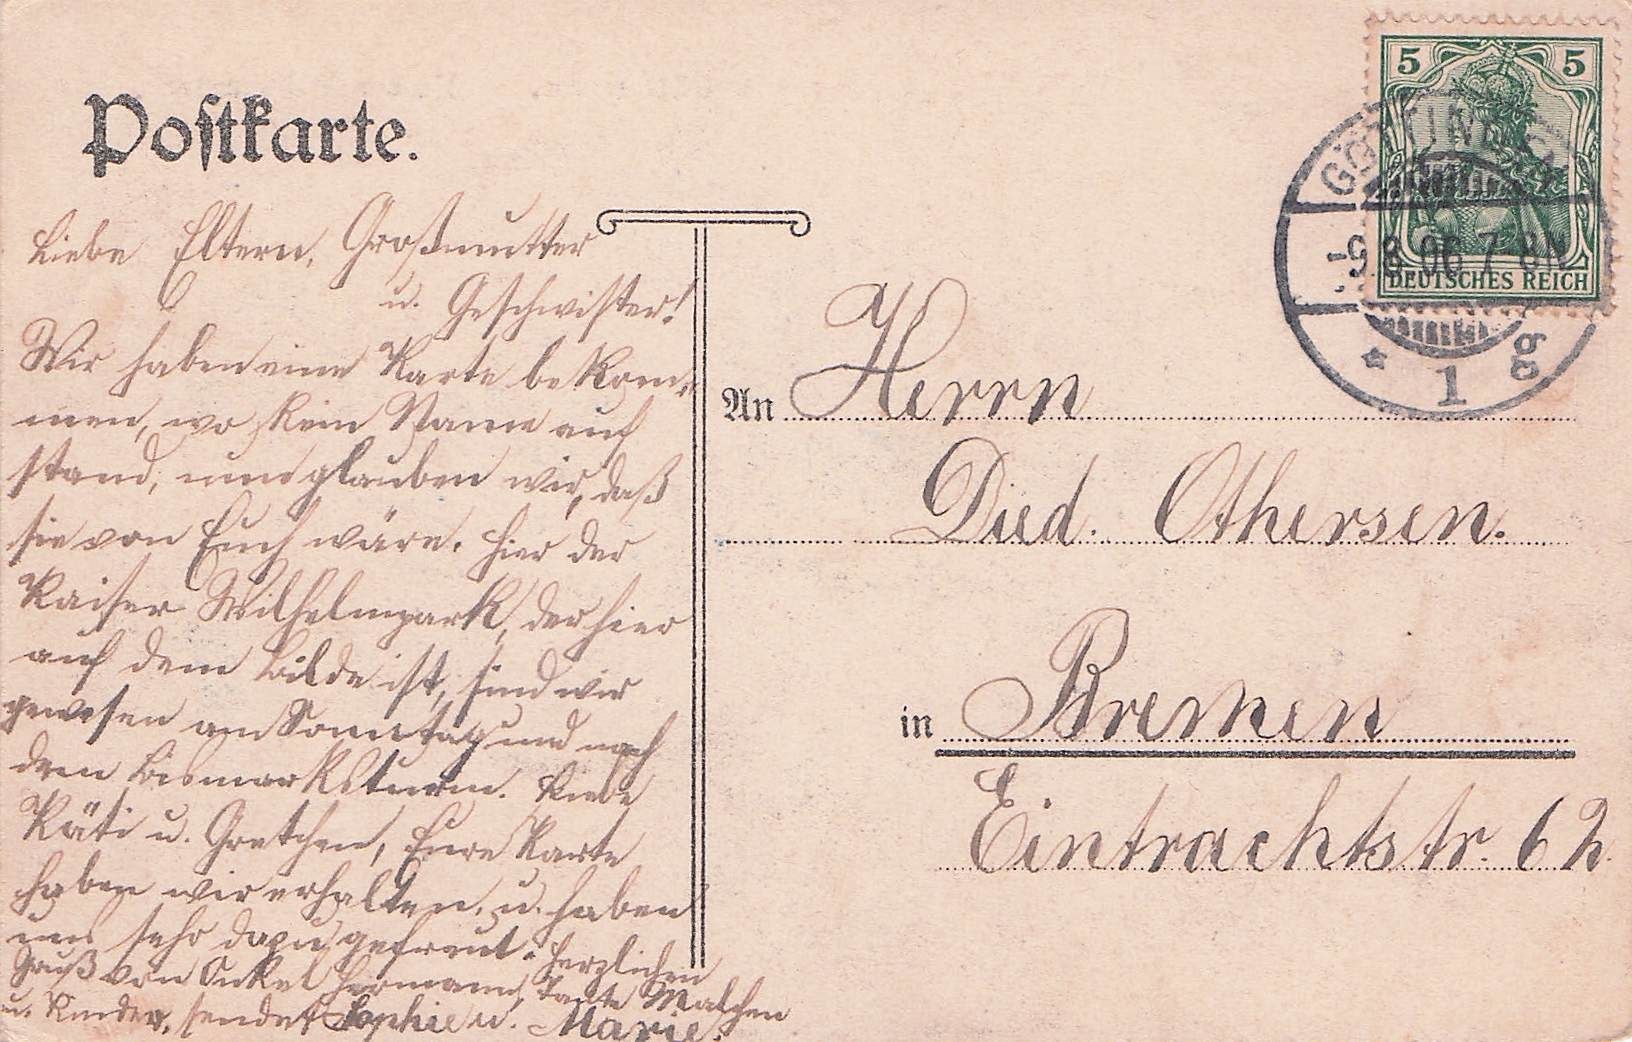 Postkarte.
Liebe Eltern, Großmutter
u. Geschwister!
Wir haben eine Karte bekom-
men, wo kein Name auf
stand, nun glauben wir, daß
sie von Euch wäre. Hier der
Kaiser Wilhelmpark, der hier
auf dem Bilde ist, sind wir
gewesen am Sonntag und nach
dem Bismarksturm. Liebe
Käti u. Gretchen, Eure Karte
haben wir erhalten, u. haben
uns sehr dazu gefreut. Herzlichen
Gruß von Onkel Hermann, Tante Malchen
u. Kinder, sendet Sophie u. Marie.
5 5
DEUTSCHES REICH
GÖTTINGEN
-9.8.06.7-8N.
* 1 g
An Herrn
Died. Othersen.
in Bremen
Eintrachtstr. 62.